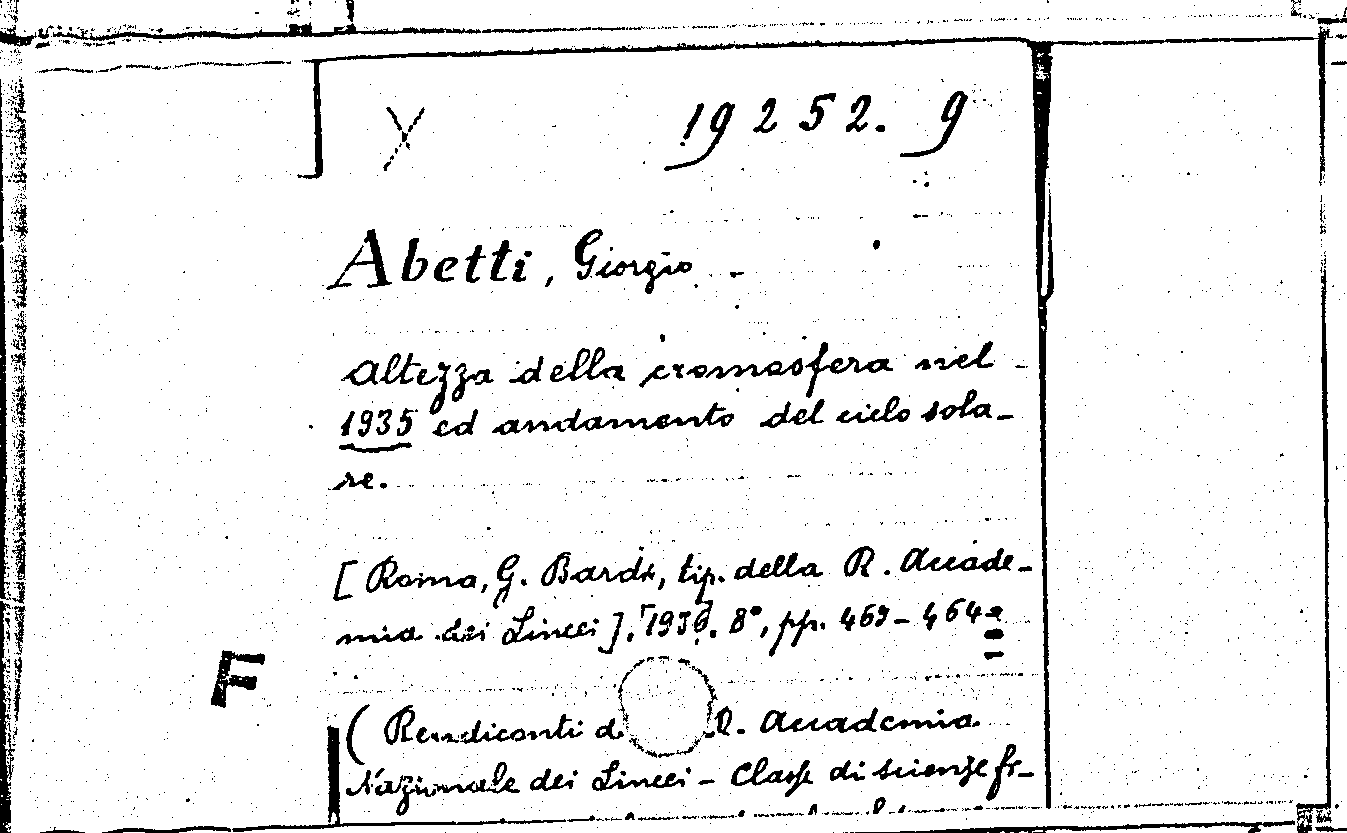 X 19252. 9
Abetti, Giorgio -
Altezza della cromosfera nel
1935 ed andamento del ciclo sola-
re.
[Roma, G. Bardi, tip. della R. Accade-
mia dei Lincei]. [1936]. 8°, pp. 463-464
F
(Rendiconti R. Accademia
Nazionale dei Lincei - Classe di scienze fi-